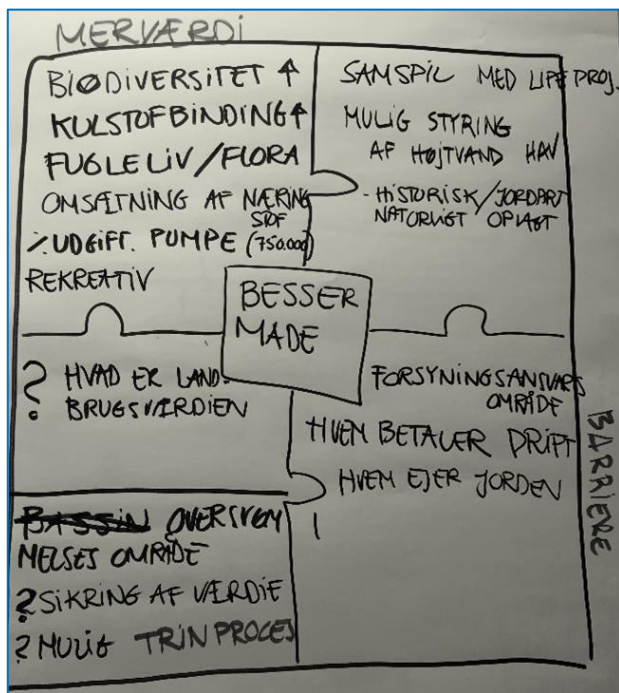 MERVÆRDI
BIØDIVERSITET ↑
KULSTOFBINDING ↑
FUGLELIV/FLORA
OMSÆTNING AF NÆRING
STOF
÷ UDGIFT. PUMPE (750.000)
REKREATIV
SAMSPIL MED LIFE PROJ.
MULIG STYRING
AF HØJTVAND HAV
- HISTORISK/JORDART
NATURLIGT OPLAGT
BESSER
MADE
? HVAD ER LAND-
BRUGSVÆRDIEN
FORSYNINGSANSVARS
OMRÅDE
HVEM BETALER DRIFT
HVEM EJER JORDEN
BARRIERE
BASSIN OVERSVØM
MELSES OMRÅDE
? SIKRING AF VÆRDIE
? MULIG TRINPROCES